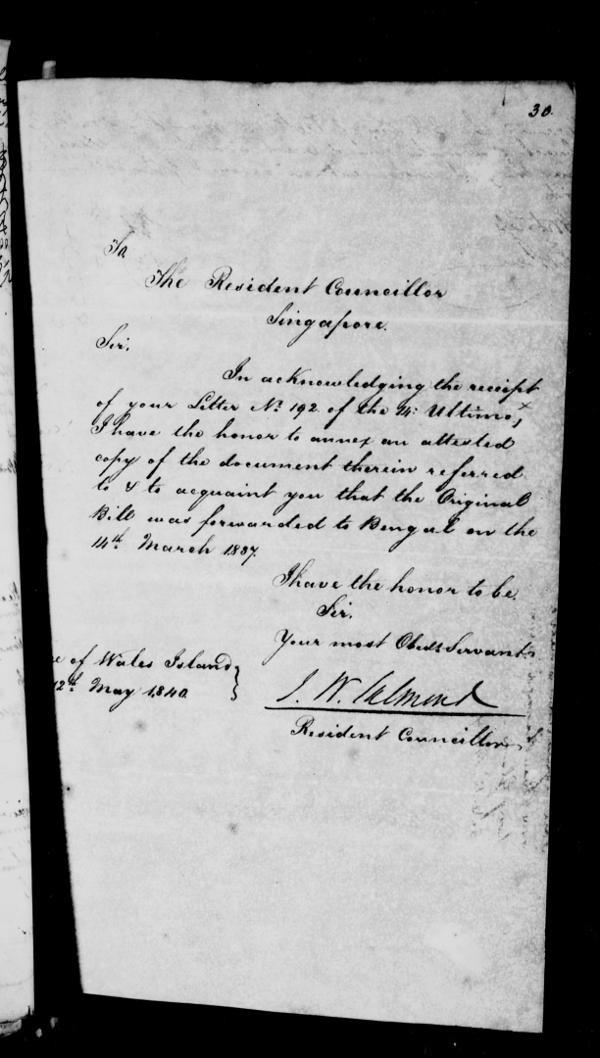 30.
To
The Resident Councillor
Singapore.
Sir,
In acknowledging the receipt
of your Letter No. 192 of the 24: Ultimo,
I have the honor to annex an attested
copy of the document therein referred
to & to acquaint you that the Original
Bill was forwarded to Bengal on the
14th. March 1837.
I have the honor to be,
Sir,
Your most Obedt. Servant
of Wales Island
12th. May 1840
J. W. Salmond
Resident Councillor